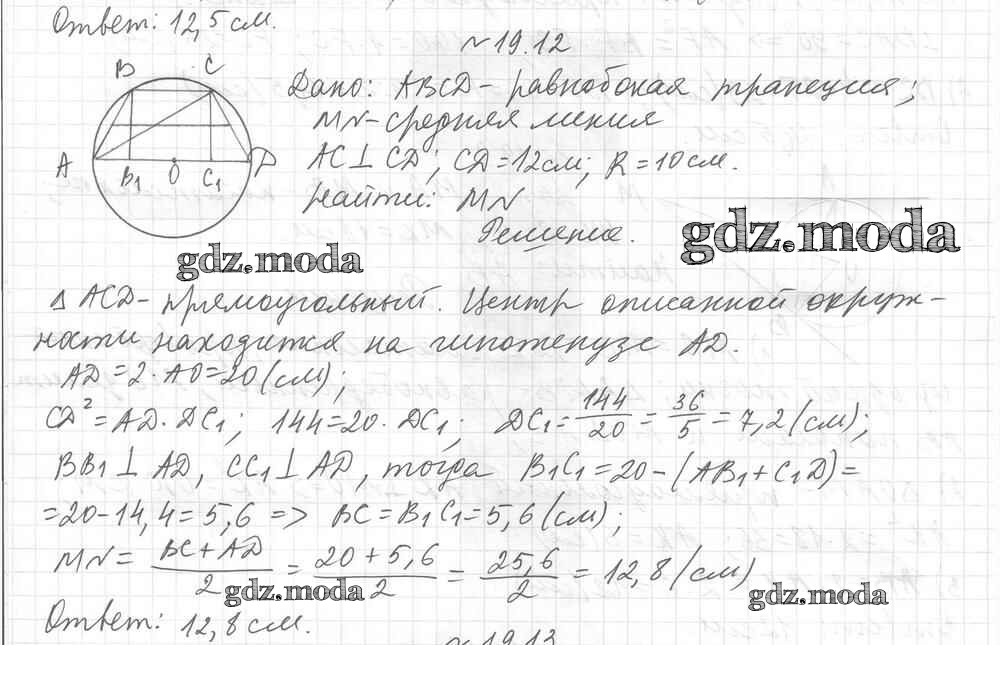 Ответ: 12,5 см.
№ 19.12
B C
A B₁ O C₁ D
Дано: ABCD - равнобокая трапеция;
MN - средняя линия
AC ⊥ CD; CD = 12 см; R = 10 см.
Найти: MN
Решение.
gdz.moda
gdz.moda
Δ ACD - прямоугольный. Центр описанной окруж-
ности находится на гипотенузе AD.
AD = 2 · AO = 20 (см);
CD² = AD · DC₁; 144 = 20 · DC₁; DC₁ = 144/20 = 36/5 = 7,2 (см);
BB₁ ⊥ AD, CC₁ ⊥ AD, тогда B₁C₁ = 20 - (AB₁ + C₁D) =
= 20 - 14,4 = 5,6 => BC = B₁C₁ = 5,6 (см);
MN = (BC + AD)/2 = (20 + 5,6)/2 = 25,6/2 = 12,8 (см)
gdz.moda
gdz.moda
Ответ: 12,8 см.
№ 19.13